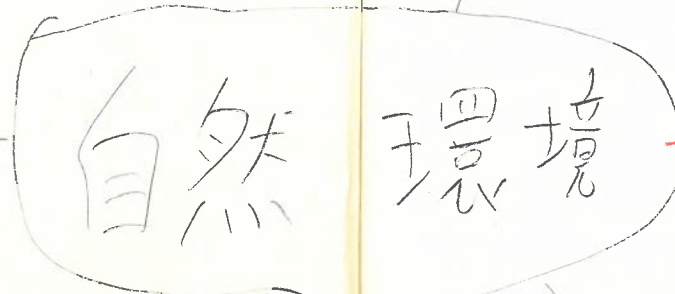 自然環境